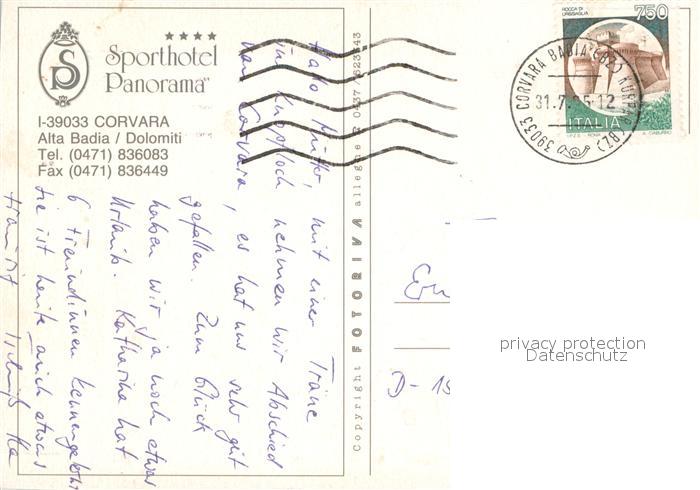 Sporthotel
Panorama
I-39033 CORVARA
Alta Badia / Dolomiti
Tel. (0471) 836083
Fax (0471) 836449
Hallo Mutter, mit einer Träne
im Knopfloch nehmen wir Abschied
von Corvara, es hat uns sehr gut
gefallen. Zum Glück
haben wir ja noch etwas
Urlaub. Katharina hat
6 Freundinnen kennengelernt
sie ist heute auch etwas
traurig
Copyright FOTORIVA
ROCCA DI URBISAGLIA
750
ITALIA
39033 CORVARA BADIA (BZ) KURFAR (BZ)
31.7. 12
D-
privacy protection
Datenschutz